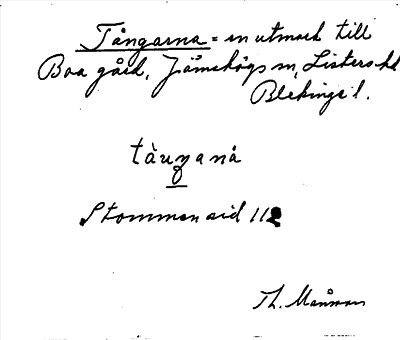 Tångarna = en utmark till
Boa gård, Jämshögs sn, Listers hd
Blekinge l.
tåuŋanå
Stommen sid 112
Th. Månsson